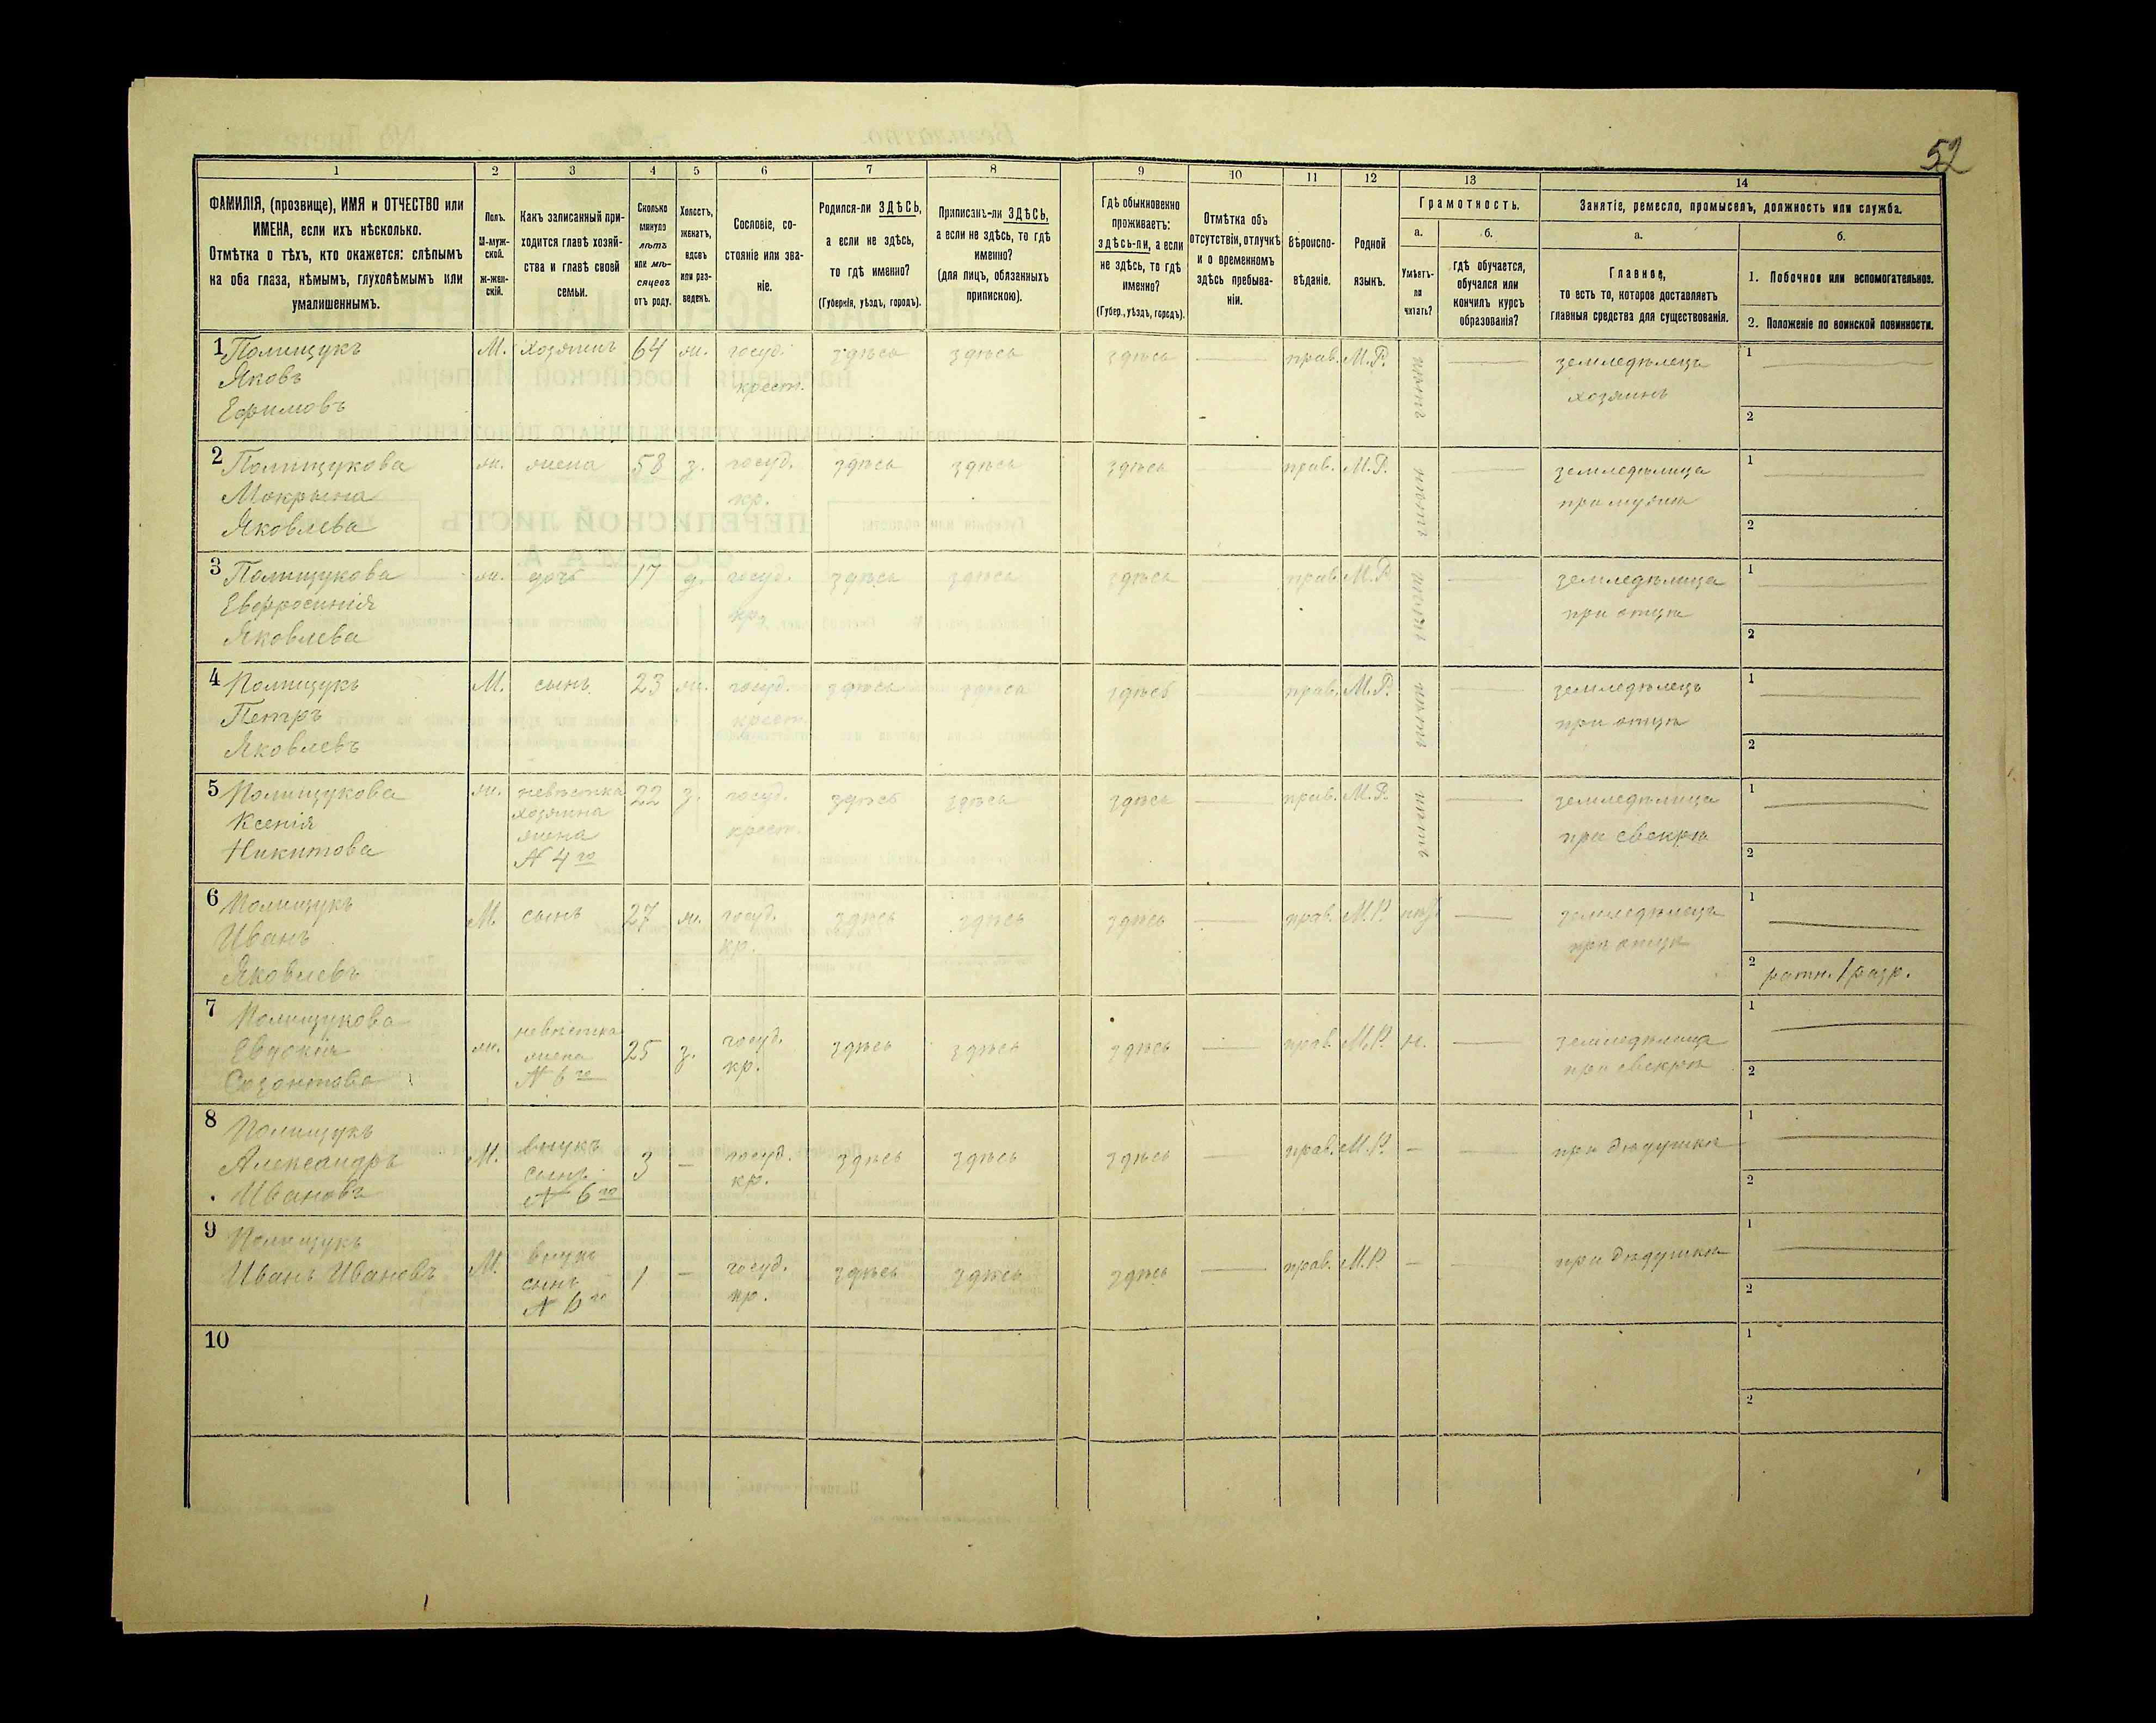 52
1
2
3
4
5
6
7
8
9
10
11
12
13
14
ФАМИЛІЯ, (прозвище), ИМЯ и ОТЧЕСТВО или
ИМЕНА, если ихъ нѣсколько.
Отмѣтка о тѣхъ, кто окажется: слѣпымъ
на оба глаза, нѣмымъ, глухонѣмымъ или
умалишеннымъ.
Полъ.
М-муж-
ской.
ж-жен-
скій.
Какъ записанный при-
ходится главѣ хозяй-
ства и главѣ своей
семьи.
Сколько
минуло
лѣтъ
или мѣ-
сяцевъ
отъ роду.
Холостъ,
женатъ,
вдовъ
или раз-
веденъ.
Сословіе, со-
стояніе или зва-
ніе.
Родился-ли ЗДѢСЬ,
а если не здѣсь,
то гдѣ именно?
(Губернія, уѣздъ, городъ).
Приписанъ-ли ЗДѢСЬ,
а если не здѣсь, то гдѣ
именно?
(для лицъ, обязанныхъ
припискою).
Гдѣ обыкновенно
проживаетъ:
здѣсь-ли, а если
не здѣсь, то гдѣ
именно?
(Губер., уѣздъ, городъ).
Отмѣтка объ
отсутствіи, отлучкѣ
и о временномъ
здѣсь пребыва-
ніи.
Вѣроиспо-
вѣданіе.
Родной
языкъ.
Грамотность.
а.
б.
Умѣетъ-
ли
читать?
гдѣ обучается,
обучался или
кончилъ курсъ
образованія?
Занятіе, ремесло, промыселъ, должность или служба.
а.
б.
Главное,
то есть то, которое доставляетъ
главныя средства для существованія.
1. Побочное или вспомогательное.
2. Положеніе по воинской повинности.
1 Полищукъ
Яковъ
Ефимовъ
М. хозяинъ 64 ж. госуд. здѣсь здѣсь здѣсь — прав. М.Р. нѣтъ — земледѣлецъ 1 —
крест. хозяинъ
2
2 Полищукова
Мокрына
Яковлева
ж. жена 58 з. госуд. здѣсь здѣсь здѣсь — прав. М.Р. нѣтъ — земледѣлица 1 —
кр. при мужѣ
2
3 Полищукова
Евфросинія
Яковлева
ж. дочь 17 д. госуд. здѣсь здѣсь здѣсь — прав. М.Р. нѣтъ — земледѣлица 1 —
кр. при отцѣ
2
4 Полищукъ
Петръ
Яковлевъ
М. сынъ 23 ж. госуд. здѣсь здѣсь здѣсь — прав. М.Р. нѣтъ — земледѣлецъ 1 —
крест. при отцѣ
2
5 Полищукова
Ксенія
Никитова
ж. невѣстка 22 з. госуд. здѣсь здѣсь здѣсь — прав. М.Р. нѣтъ — земледѣлица 1 —
хозяина крест. при свекрѣ
жена
N 4го
2
6 Полищукъ
Иванъ
Яковлевъ
М. сынъ 27 ж. госуд. здѣсь здѣсь здѣсь — прав. М.Р. — земледѣлецъ 1 —
кр. при отцѣ
2 ратн. 1 разр.
7 Полищукова
Евдокія
Созонтова
ж. невѣстка 25 з. госуд. здѣсь здѣсь здѣсь — прав. М.Р. н. — земледѣлица 1 —
жена кр. при свекрѣ
N 6го
2
8 Полищукъ
Александръ
Ивановъ
М. внукъ 3 — госуд. здѣсь здѣсь здѣсь — прав. М.Р. — — при дѣдушкѣ 1 —
сынъ кр.
N 6го
2
9 Полищукъ
Иванъ Ивановъ
М. внукъ 1 — госуд. здѣсь здѣсь здѣсь — прав. М.Р. — — при дѣдушкѣ 1 —
сынъ кр.
N 6го
2
10
1
2